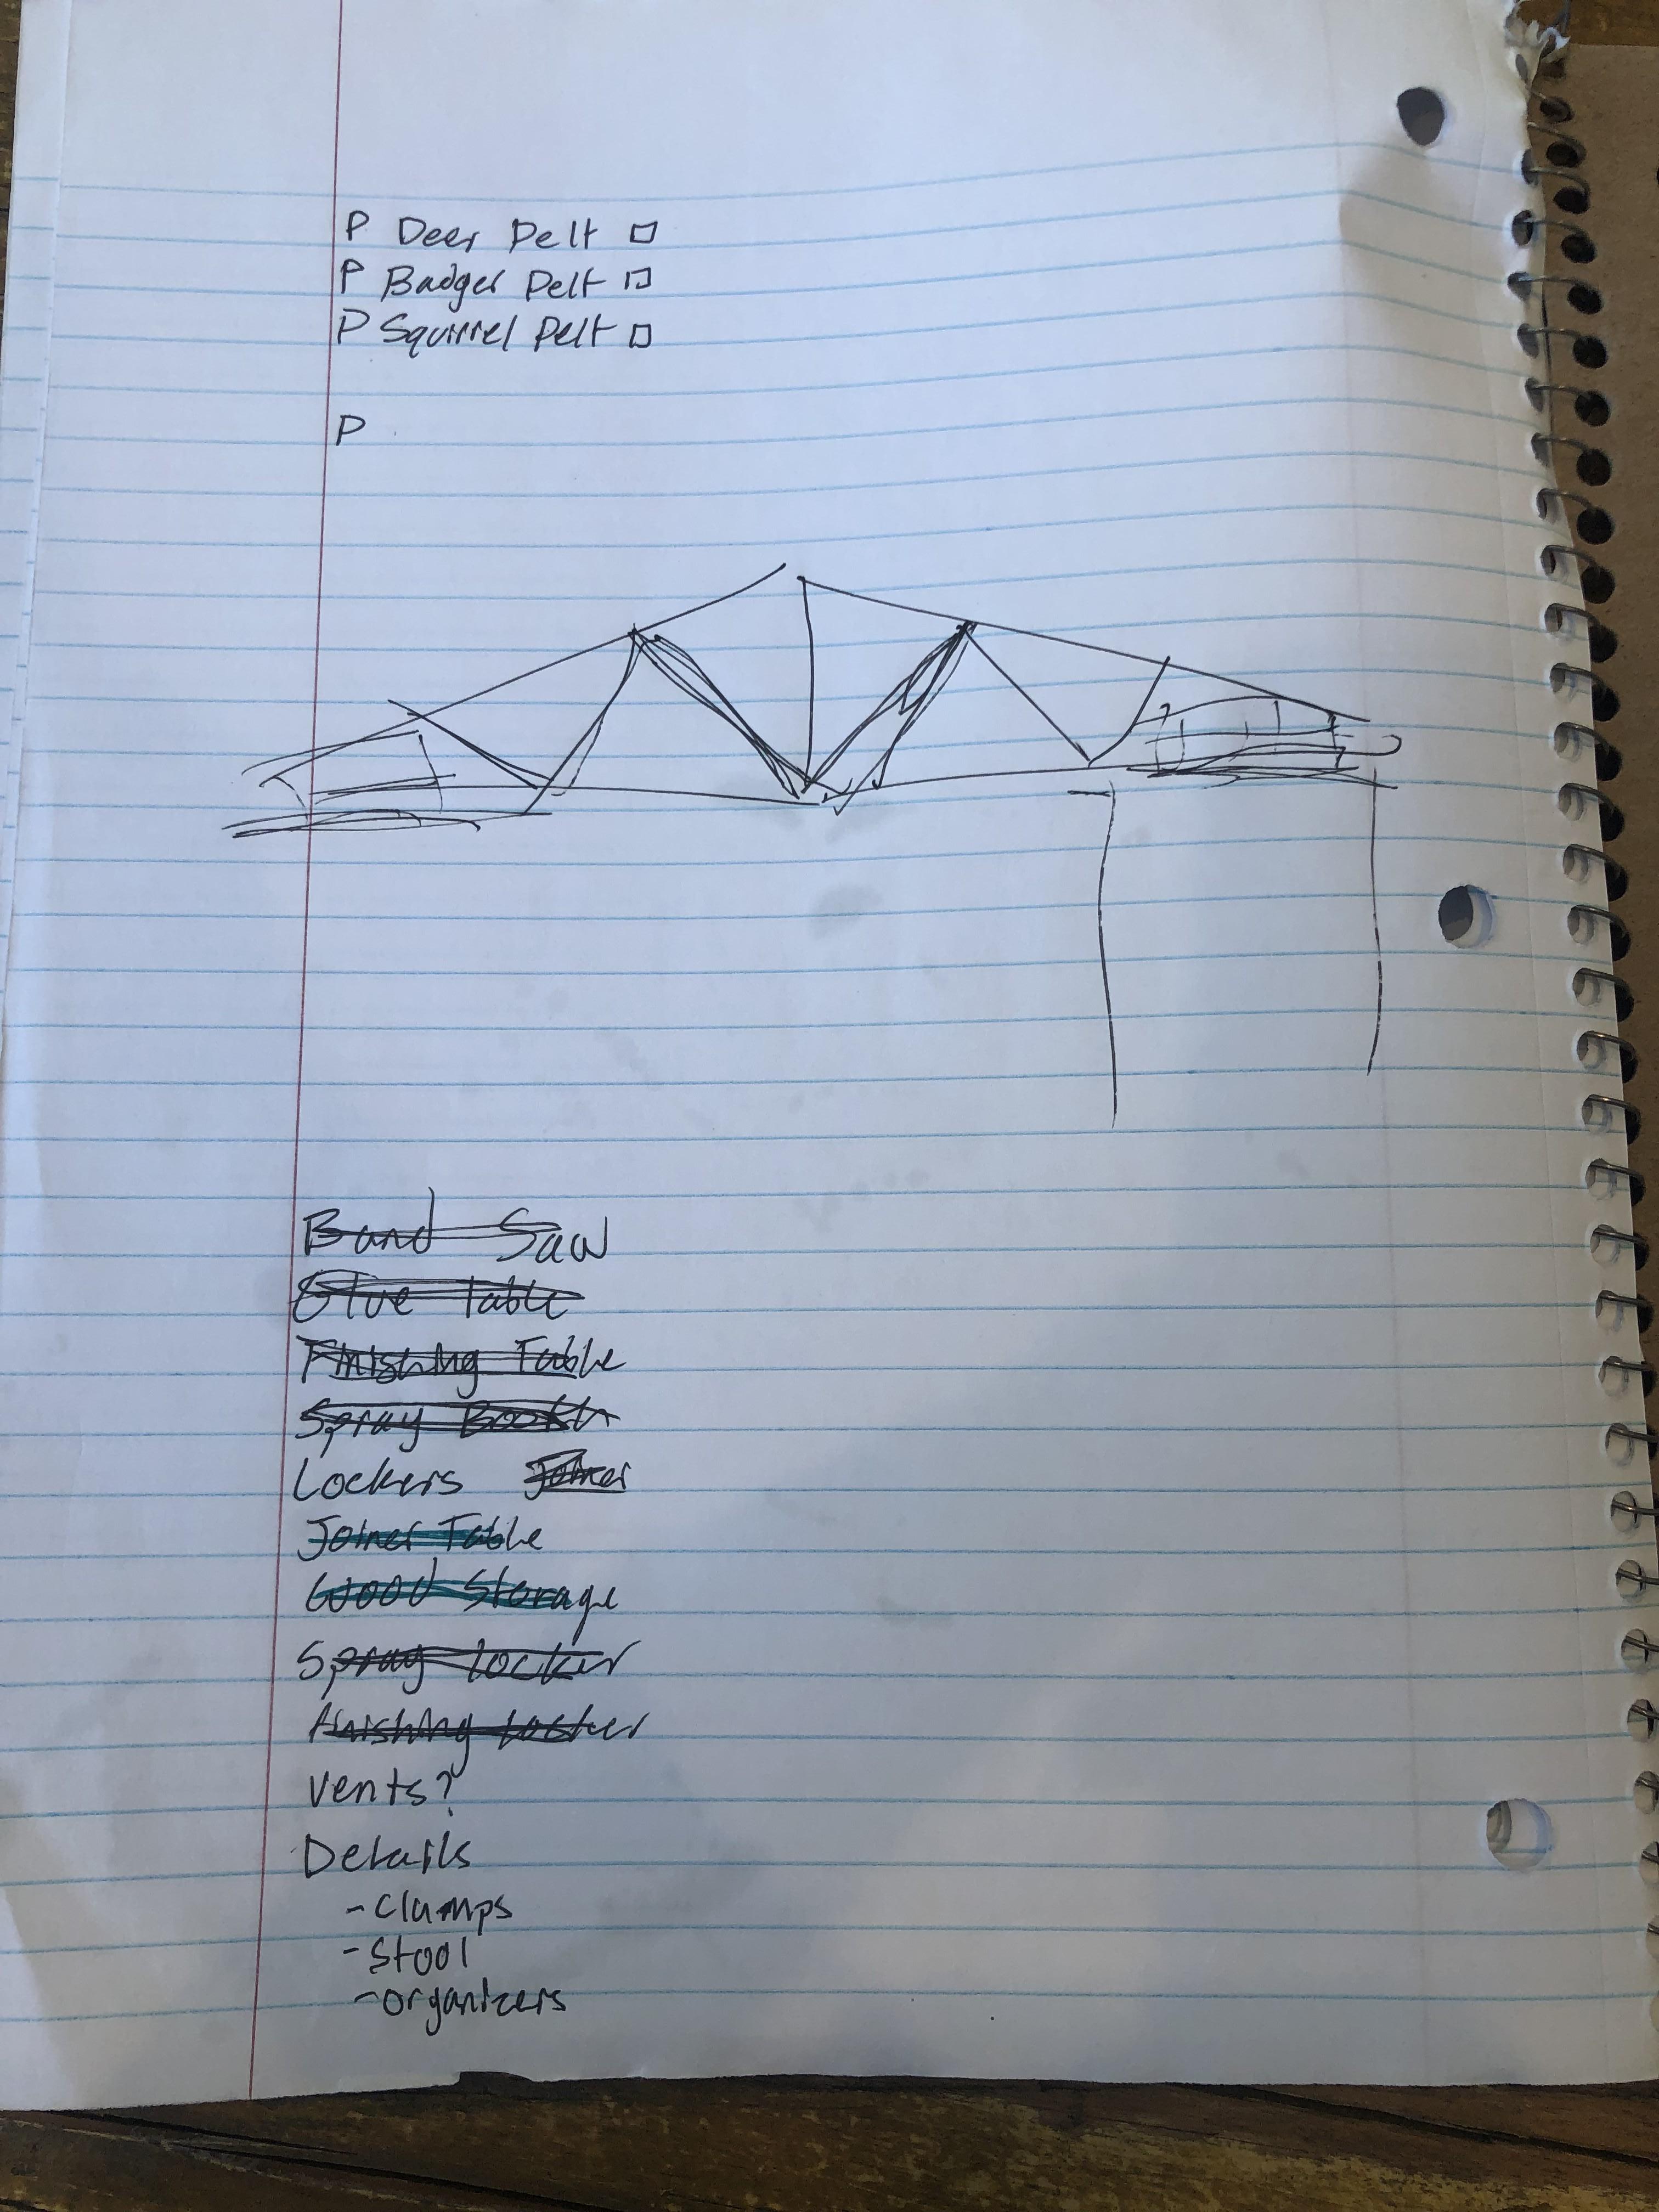 P Deer Pelt □
P Badger Pelt □
P Squirrel Pelt □
P
Band Saw
Glue Table
Finishing Table
Spray Booth
Lockers Joiner
Joiner Table
Wood Storage
Spray locker
finishing locker
Vents?
Details
- Clamps
- Stool
- organizers